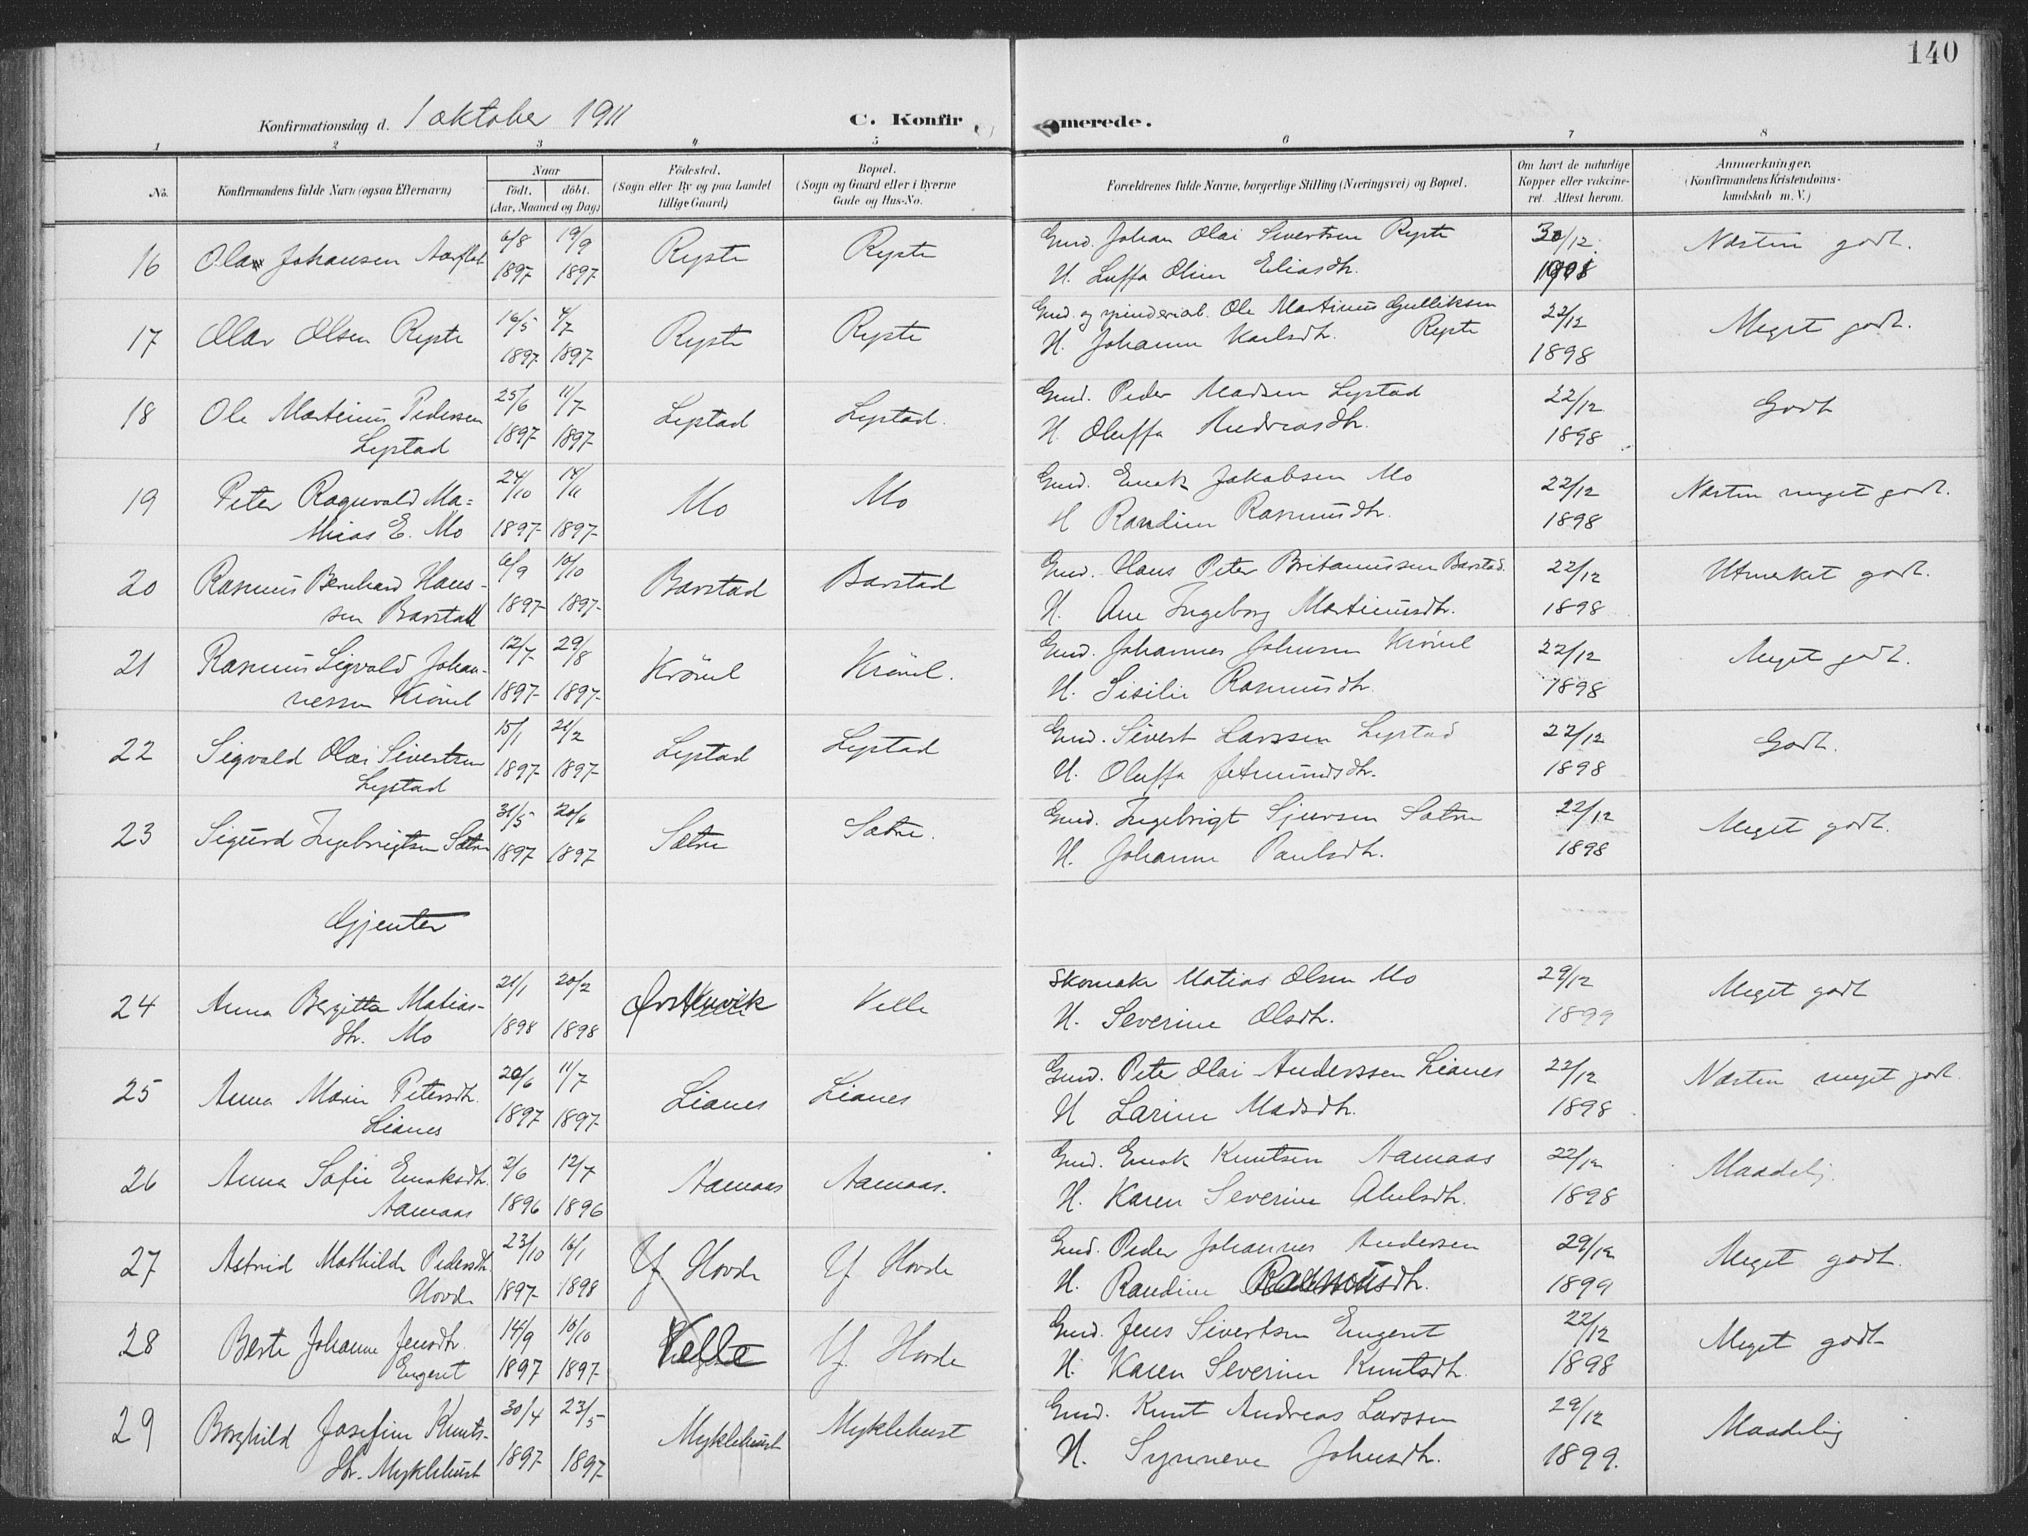 140
Konfirmationsdag d. 1 oktober 1911
C. Konfirmerede.
1 2 3 4 5 6 7 8
No.
Konfirmandens fulde Navn (ogsaa Efternavn)
Naar
født. døbt.
(Aar, Maaned og Dag)
Fødested.
(Sogn eller By og paa Landet
tillige Gaard)
Bopæl.
(Sogn og Gaard eller i Byerne
Gade og Hus-No.
Forældrenes fulde Navne, borgerlige Stilling (Næringsvei) og Bopæl.
Om havt de naturlige
Kopper eller vakcine-
ret. Attest herom.
Anmærkninger.
(Konfirmandens Kristendoms-
kundskab m. V.)
16 Olav Johansen Aarflot 6/8 1897 19/9 1897 Ryste Ryste
Gmd. Johan Olai Sivertsen Ryste
H. Luffa Oline Eliasdtr.
30/12 Næsten godt.
17 Olav Olsen Ryste 16/5 1897 4/7 1897 Ryste Ryste
Gmd. og Ole Martinus Gulliksen
H. Johanne Karlsdtr. Ryste
22/12 1898 Meget godt.
18 Ole Martinus Pedersen
Lystad 25/6 1897 11/7 1897 Lystad Lystad.
Gmd. Peder Madsen Lystad
H. Oluffa Andreasdtr.
22/12 1898 Godt
19 Peter Ragnvald Ma-
thias E. Mo 24/10 1897 14/11 1897 Mo Mo
Gmd. Enok Jakobsen Mo
H Randine Rasmusdtr.
22/12 1898 Næsten meget godt.
20 Rasmus Bernhard Hans-
sen Barstad 6/9 1897 10/10 1897 Barstad Barstad
Gmd. Hans Peter Britanussen Barstad.
H. Ane Ingeborg Martinusdtr.
22/12 1898 Utmerket godt.
21 Rasmus Sigvald Johan-
nessen Krövel 12/7 1897 29/8 1897 Krövel Krövel.
Gmd. Johannes Johnsen Krövel
H. Sisilie Rasmusdtr.
22/12 1898 Meget godt.
22 Sigvald Olai Sivertsen
Lystad 15/1 1897 21/2 1897 Lystad Lystad
Gmd. Sivert Larssen Lystad
H. Oluffa Jetmundsdtr.
22/12 1898 Godt.
23 Sigurd Ingebrigtsen Sætre 31/5 1897 20/6 1897 Sætre Sætre.
Gmd. Ingebrigt Sjursen Sætre
H. Johanne Paulsdtr.
22/12 1898 Meget godt.
Gjenter
24 Anna Bergitta Matias-
dtr. Mo 21/1 1898 20/2 1898 Ørstenvik Velle
Skomaker Matias Olsen Mo
H. Severine Olsdtr.
29/12 1899 Meget godt
25 Anna Marie Petersdtr.
Lianes 20/6 1897 11/7 1897 Lianes Lianes
Gmd. Peter Olai Anderssen Lianes
H Larine Madsdtr.
22/12 1898 Næsten meget godt.
26 Anna Sofie Enoksdtr.
Aamaas 2/6 1896 12/7 1896 Aamaas Aamaas.
Gmd. Enok Knutsen Aamaas
H. Karen Severine Abelsdtr.
22/12 1898 Maadelig
27 Astrid Mathilde Pedersdtr.
Hovde 23/10 1897 16/1 1898 Y. Hovde Y. Hovde
Gmd. Peder Johannes Andersen
H. Randine Rasmusdtr.
29/12 1899 Meget godt.
28 Berte Johanne Jensdtr.
Engeset 14/9 1897 10/10 1897 Velle Y. Hovde
Gmd. Jens Sivertsen Engeset
H. Karen Severine Knutsdtr.
22/12 1898 Meget godt
29 Borghild Josefine Knuts-
dtr. Myklebust 30/4 1897 23/5 1897 Myklebust Myklebust
Gmd. Knut Andreas Larssen
H. Synneve Johnsdtr.
29/12 1899. Maadelig